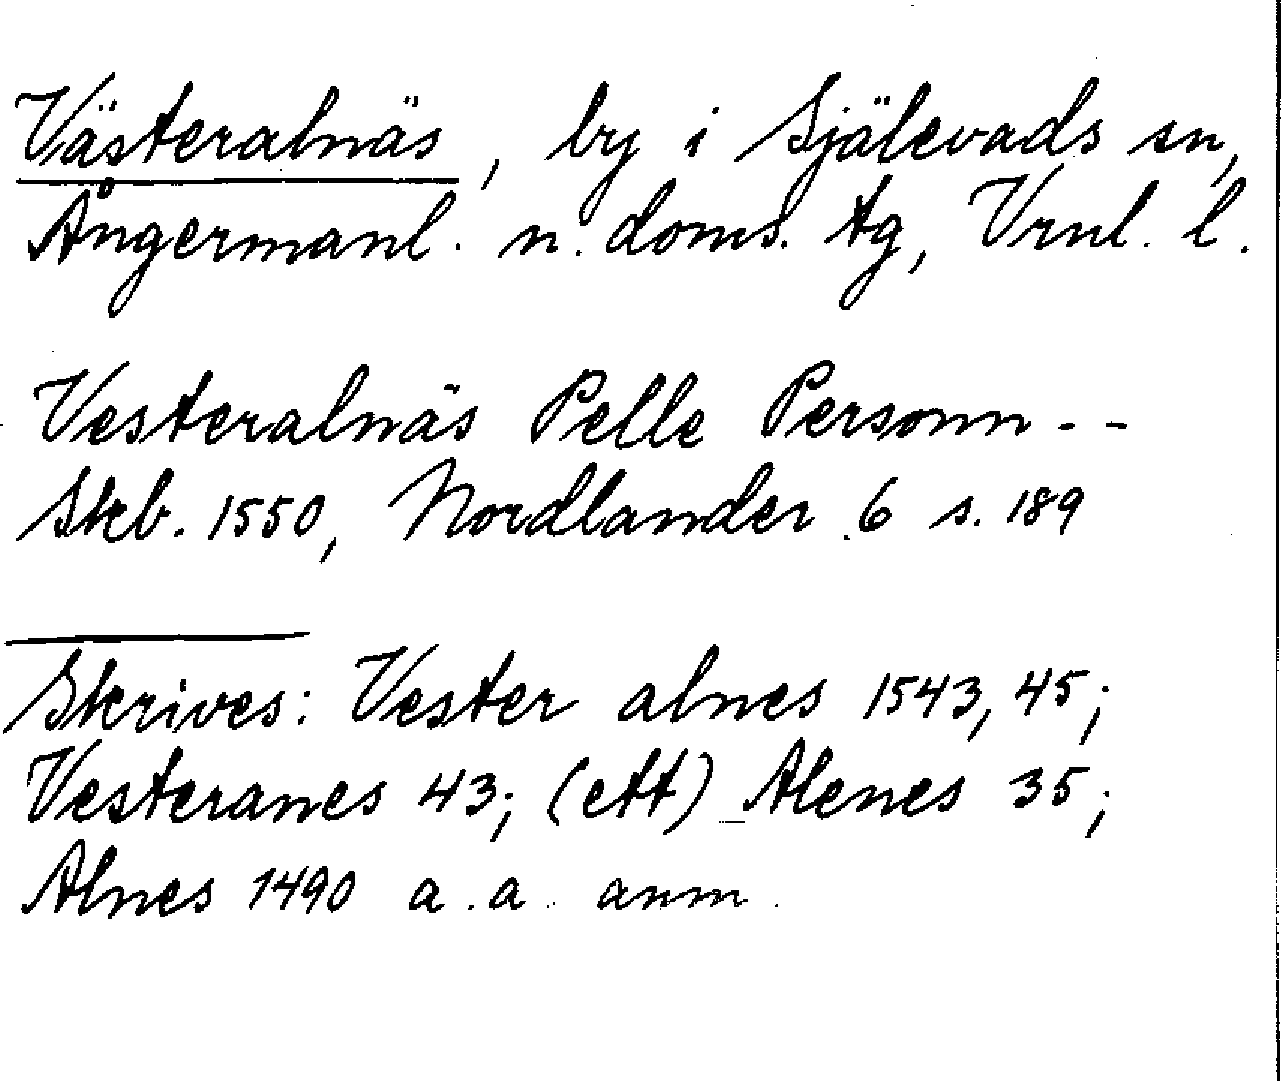 Västeralnäs, by i Själevads sn,
Ångermanl. n. doms. tg, Vrnl. l.
Vesteralnäs Pelle Personn - -
Skb. 1550, Nordlander 6 s. 189
Skrives: Vester alnes 1543, 45;
Vesteranes 43; (ett) Alenes 35;
Alnes 1490 a.a. anm.